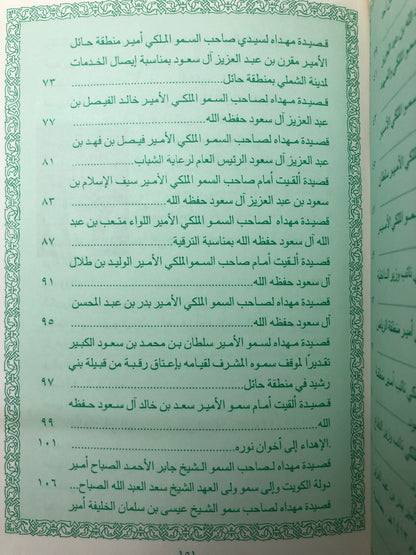 قصيدة مهداه لسيدي صاحب السمو الملكي أمير منطقة حائل
الأمير مقرن بن عبد العزيز آل سعود بمناسبة إيصال الخدمات
لمدينة الشملي بمنطقة حائل ........ ٧٣
قصيدة مهداه لصاحب السمو الملكي الأمير خالد الفيصل بن
عبد العزيز آل سعود حفظه الله ........ ٧٧
قصيدة مهداه لصاحب السمو الملكي الأمير فيصل بن فهد بن
عبد العزيز آل سعود الرئيس العام لرعاية الشباب ........ ٨١
قصيدة ألقيت أمام صاحب السمو الملكي الأمير سيف الإسلام بن
سعود بن عبد العزيز آل سعود حفظه الله ........ ٨٣
قصيدة مهداه لصاحب السمو الملكي الأمير اللواء متعب بن عبد
الله آل سعود حفظه الله بمناسبة الترقية ........ ٨٧
قصيدة ألقيت أمام صاحب السمو الملكي الأمير الوليد بن طلال
آل سعود حفظه الله ........ ٩١
قصيدة مهداه لصاحب السمو الملكي الأمير بدر بن عبد المحسن
آل سعود حفظه الله ........ ٩٥
قصيدة مهداه لسمو الأمير سلطان بن محمد بن سعود الكبير
تقديرًا لموقف سموه المشرف لقيامه بإعتاق رقبة من قبيلة بني
رشيد في منطقة حائل ........ ٩٧
قصيدة ألقيت أمام سمو الأمير سعد بن خالد آل سعود حفظه
الله ........ ٩٩
الإهداء إلى أخوان نوره ........ ١٠١
قصيدة مهداه لصاحب السمو الشيخ جابر الأحمد الصباح أمير
دولة الكويت وإلى سمو ولى العهد الشيخ سعد العبد الله الصباح... ١٠٦
قصيدة مهداه لصاحب سمو الشيخ عيسى بن سلمان الخليفة أمير